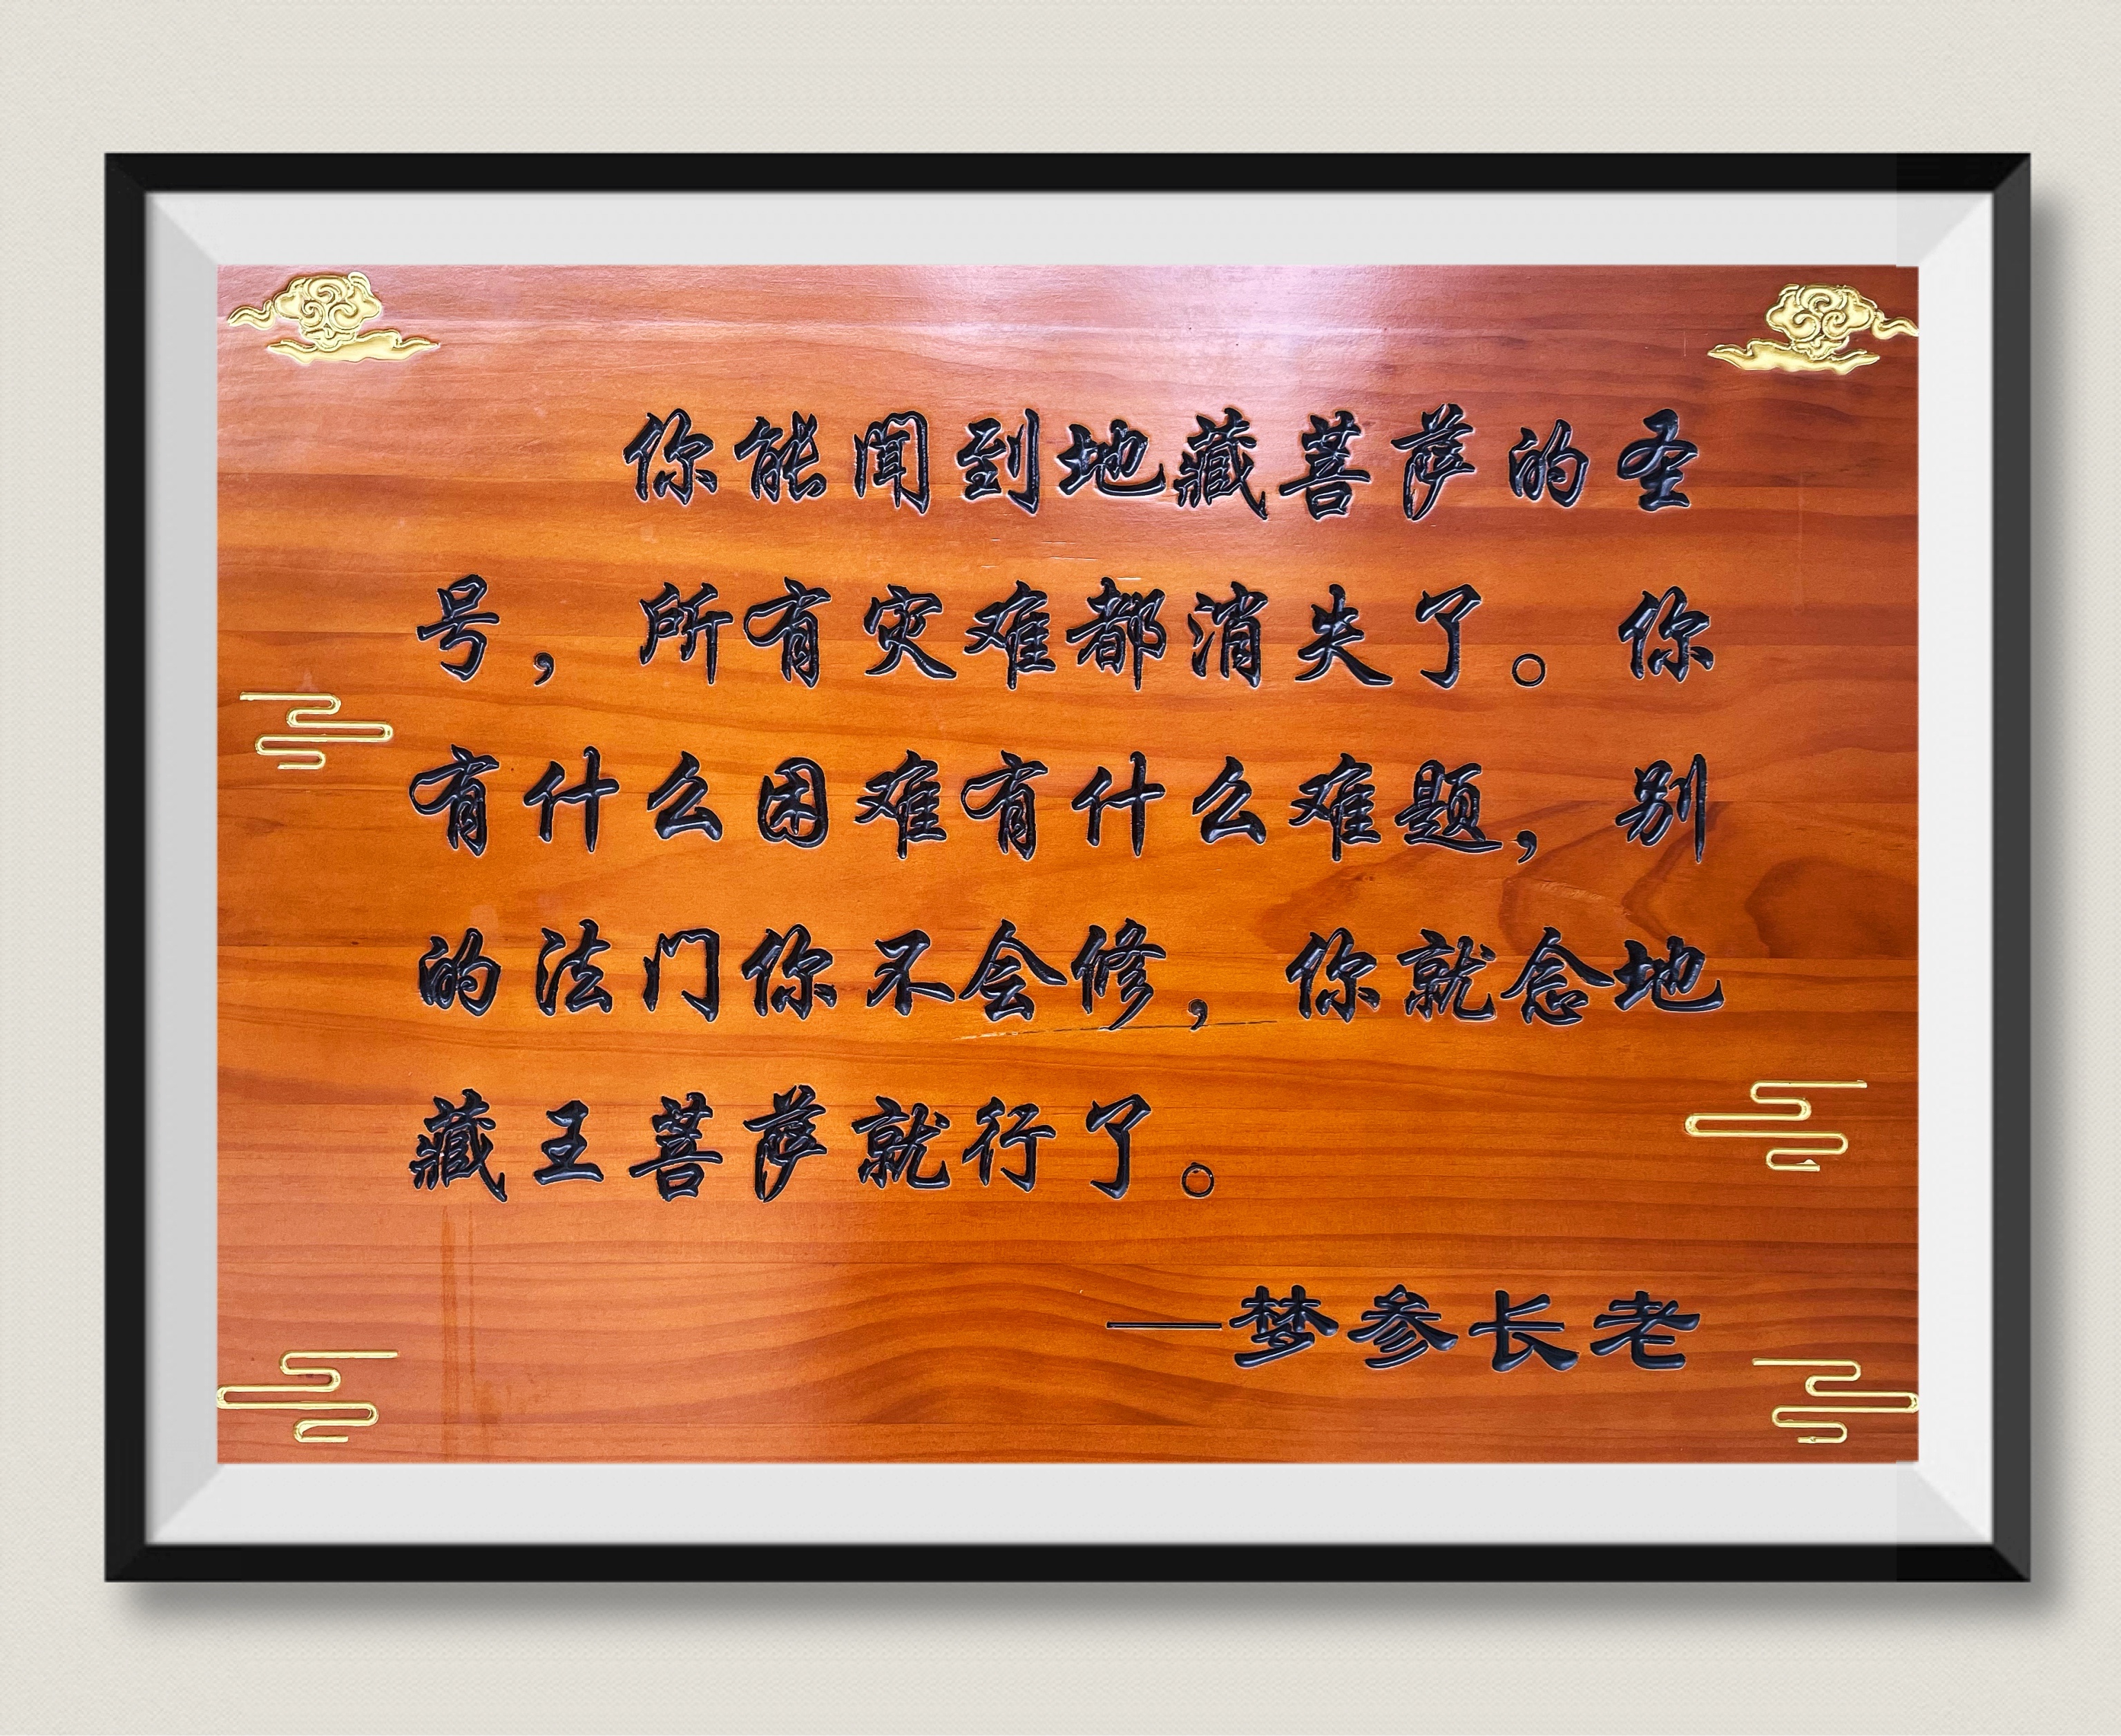 你能闻到地藏菩萨的圣
号，所有灾难都消失了。你
有什么困难有什么难题，别
的法门你不会修，你就念地
藏王菩萨就行了。
——梦参长老